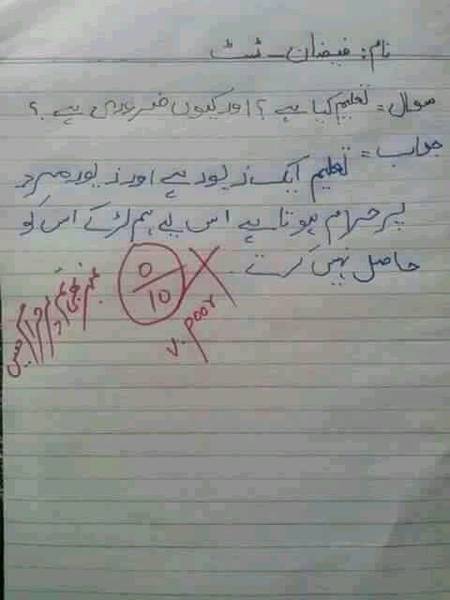 نام: فیضان - ٹسٹ
سوال = تعلیم کیا ہے؟ اور کیوں ضروری ہے؟
جواب = تعلیم ایک زیور ہے اور زیور مرد
پر حرام ہوتا ہے اس لیے ہم لڑکے اس کو
حاصل نہیں کرتے
0
10
v. poor